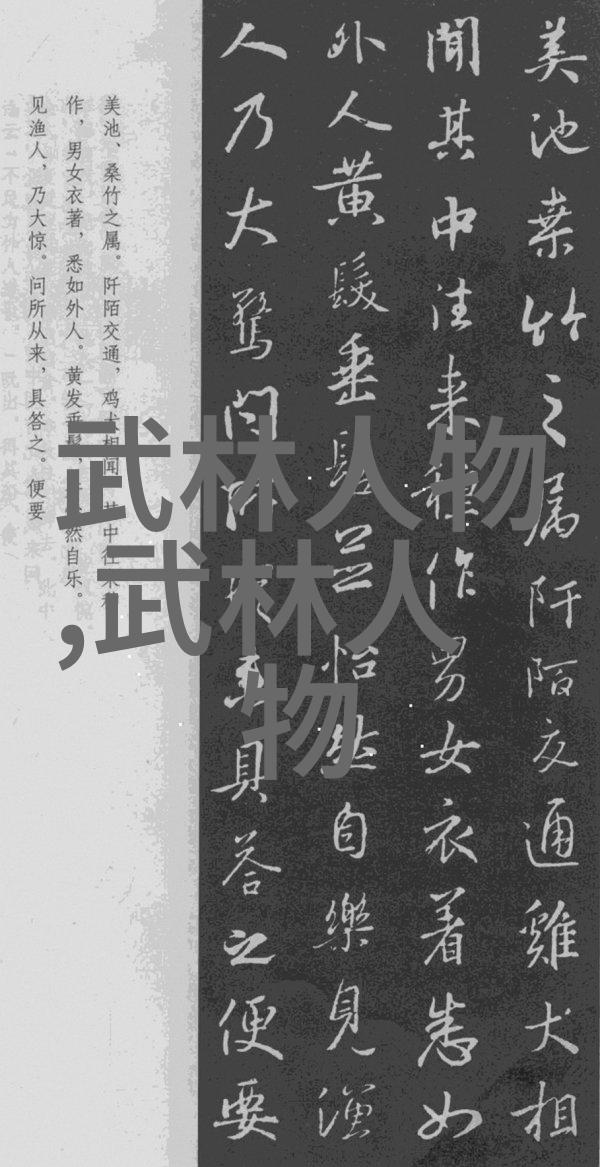 美池桒竹之属阡陌交通雞犬相
聞其中往来種作男女衣着悉如
外人黄髮垂髫並怡然自樂見漁
人乃大驚問所從来具答之便要
美池、桑竹之属。阡陌交通，鸡犬相闻。其中往来种
作，男女衣著，悉如外人。黄发垂髫，然自乐。
见渔人，乃大惊。问所从来，具答之。便要
武林人物
,武林人
物